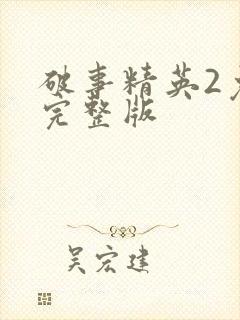 破事精英2
完整版
吴宏建